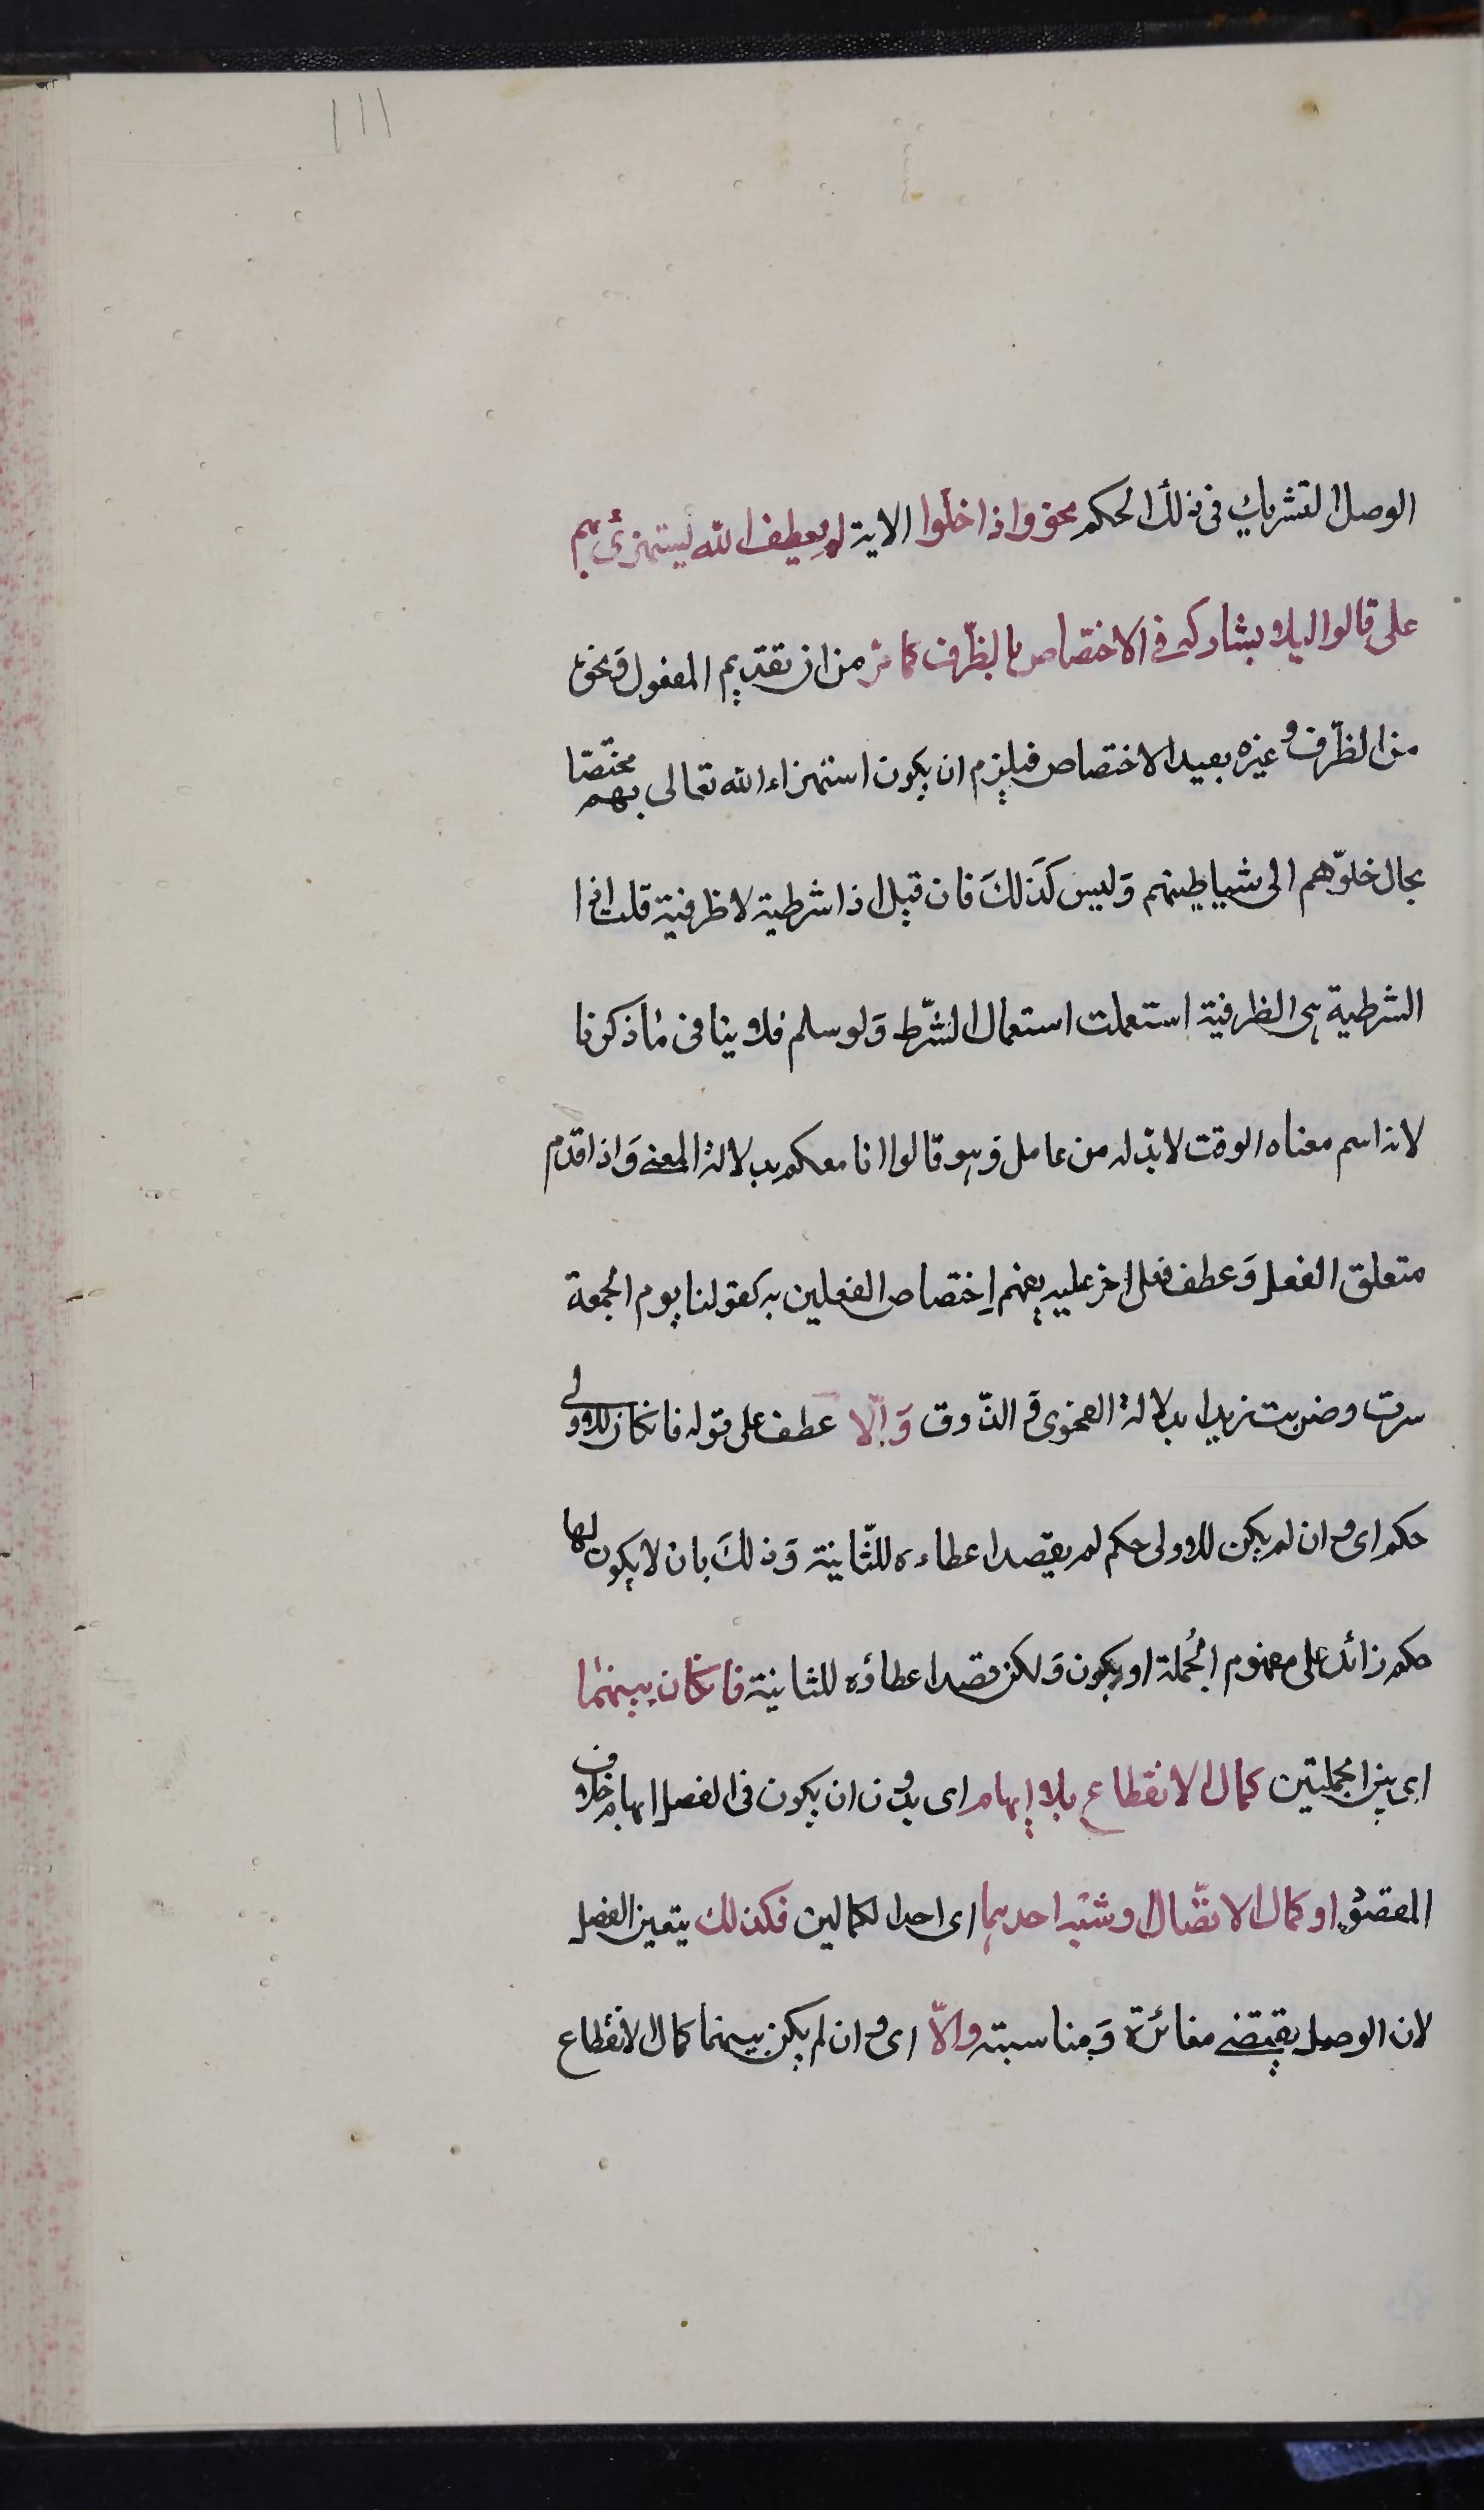 ١١١
الوصل التشريك فى ذلك الحكم نحو واذا خلوا الاية لم يعطف الله يستهزئ بهم
على قالوا ليلا يشاركه فى الاختصاص بالظّرف كما مرّ من ان تقديم المفعول وَنحوه
من الظّرف وغيره يفيد الاختصاص فيلزم ان يكون استهزاء الله تعالى بهم مختصّا
بحال خلوّهم الى شياطينهم وَليس كَذلكَ فان قيل اذا شرطية لا ظرفية قلت اذا
الشرطية هى الظرفية استعملت استعمال الشّرط وَلو سلم فلا ينافى ما ذكرنا
لانه اسم معناه الوقت لا بدّ له من عامل وَهو قالوا انا معكم بدلالة المعنى وَاذا قدم
متعلق الفعل وَعطف فعل اخر عليه يفهم اِختصاص الفعلين به كقولنا يوم الجمعة
سرت وضربت زيدا بدلالة الفحوى وَ الذّوق وَالّا عطف على قوله فان كان للاولى
حكم اى وان لم يكن للاولى حكم لم يقصد اعطاءه للثّانية وَذلكَ بان لا يكون لها
حكم زائد على مفهوم الجُملة او يكون وَلكن قصد اعطاؤه للثانية فان كان بينهما
اى بين الجملتين كمال الانقطاع بلا إيهام اى بدون ان يكون فى الفصل ايهام خلاف
المقصود او كمال الاتصّال او شبْه احدهما اى احد الكمالين فكذلك يتعين الفصل
لان الوصل يقتضى مغائرة وَمناسبته والّا اى وان لم يكن بينهما كمال الانقطاع